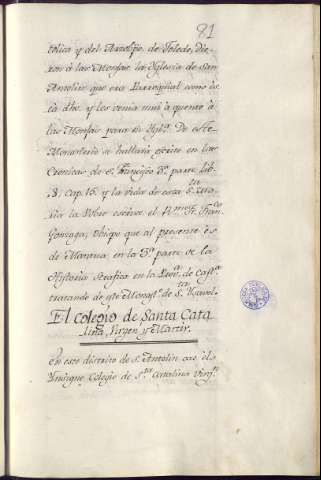 81
tolica y del Arzobpo. de Toledo, die-
ron à las Monjas la Yglesia de San
Antolin que era Parroquial como es-
ta dho. y les venia mui à quento à
las Monjas para su Yglª. De este
Monasterio se hallará escrito en las
Cronicas de S. Francisco 3ª. parte lib.
8. cap. 15. y la vida de esta Stª. Ma-
ria la Pobre escrive el Rmo. Fr. Franco.
Gonzaga, Obispo que al presente es
de Mantua, en la 3ª. parte de la
Historia Serafica en la Provª. de Castª.
tratando de este Monastº. de Stª. Ysavel.
El Colegio de Santa Cata
lina, Virgen y Martir.
En este distrito de S. Antolin cae el
Ynsigne Colegio de Sta. Catalina Virgn.